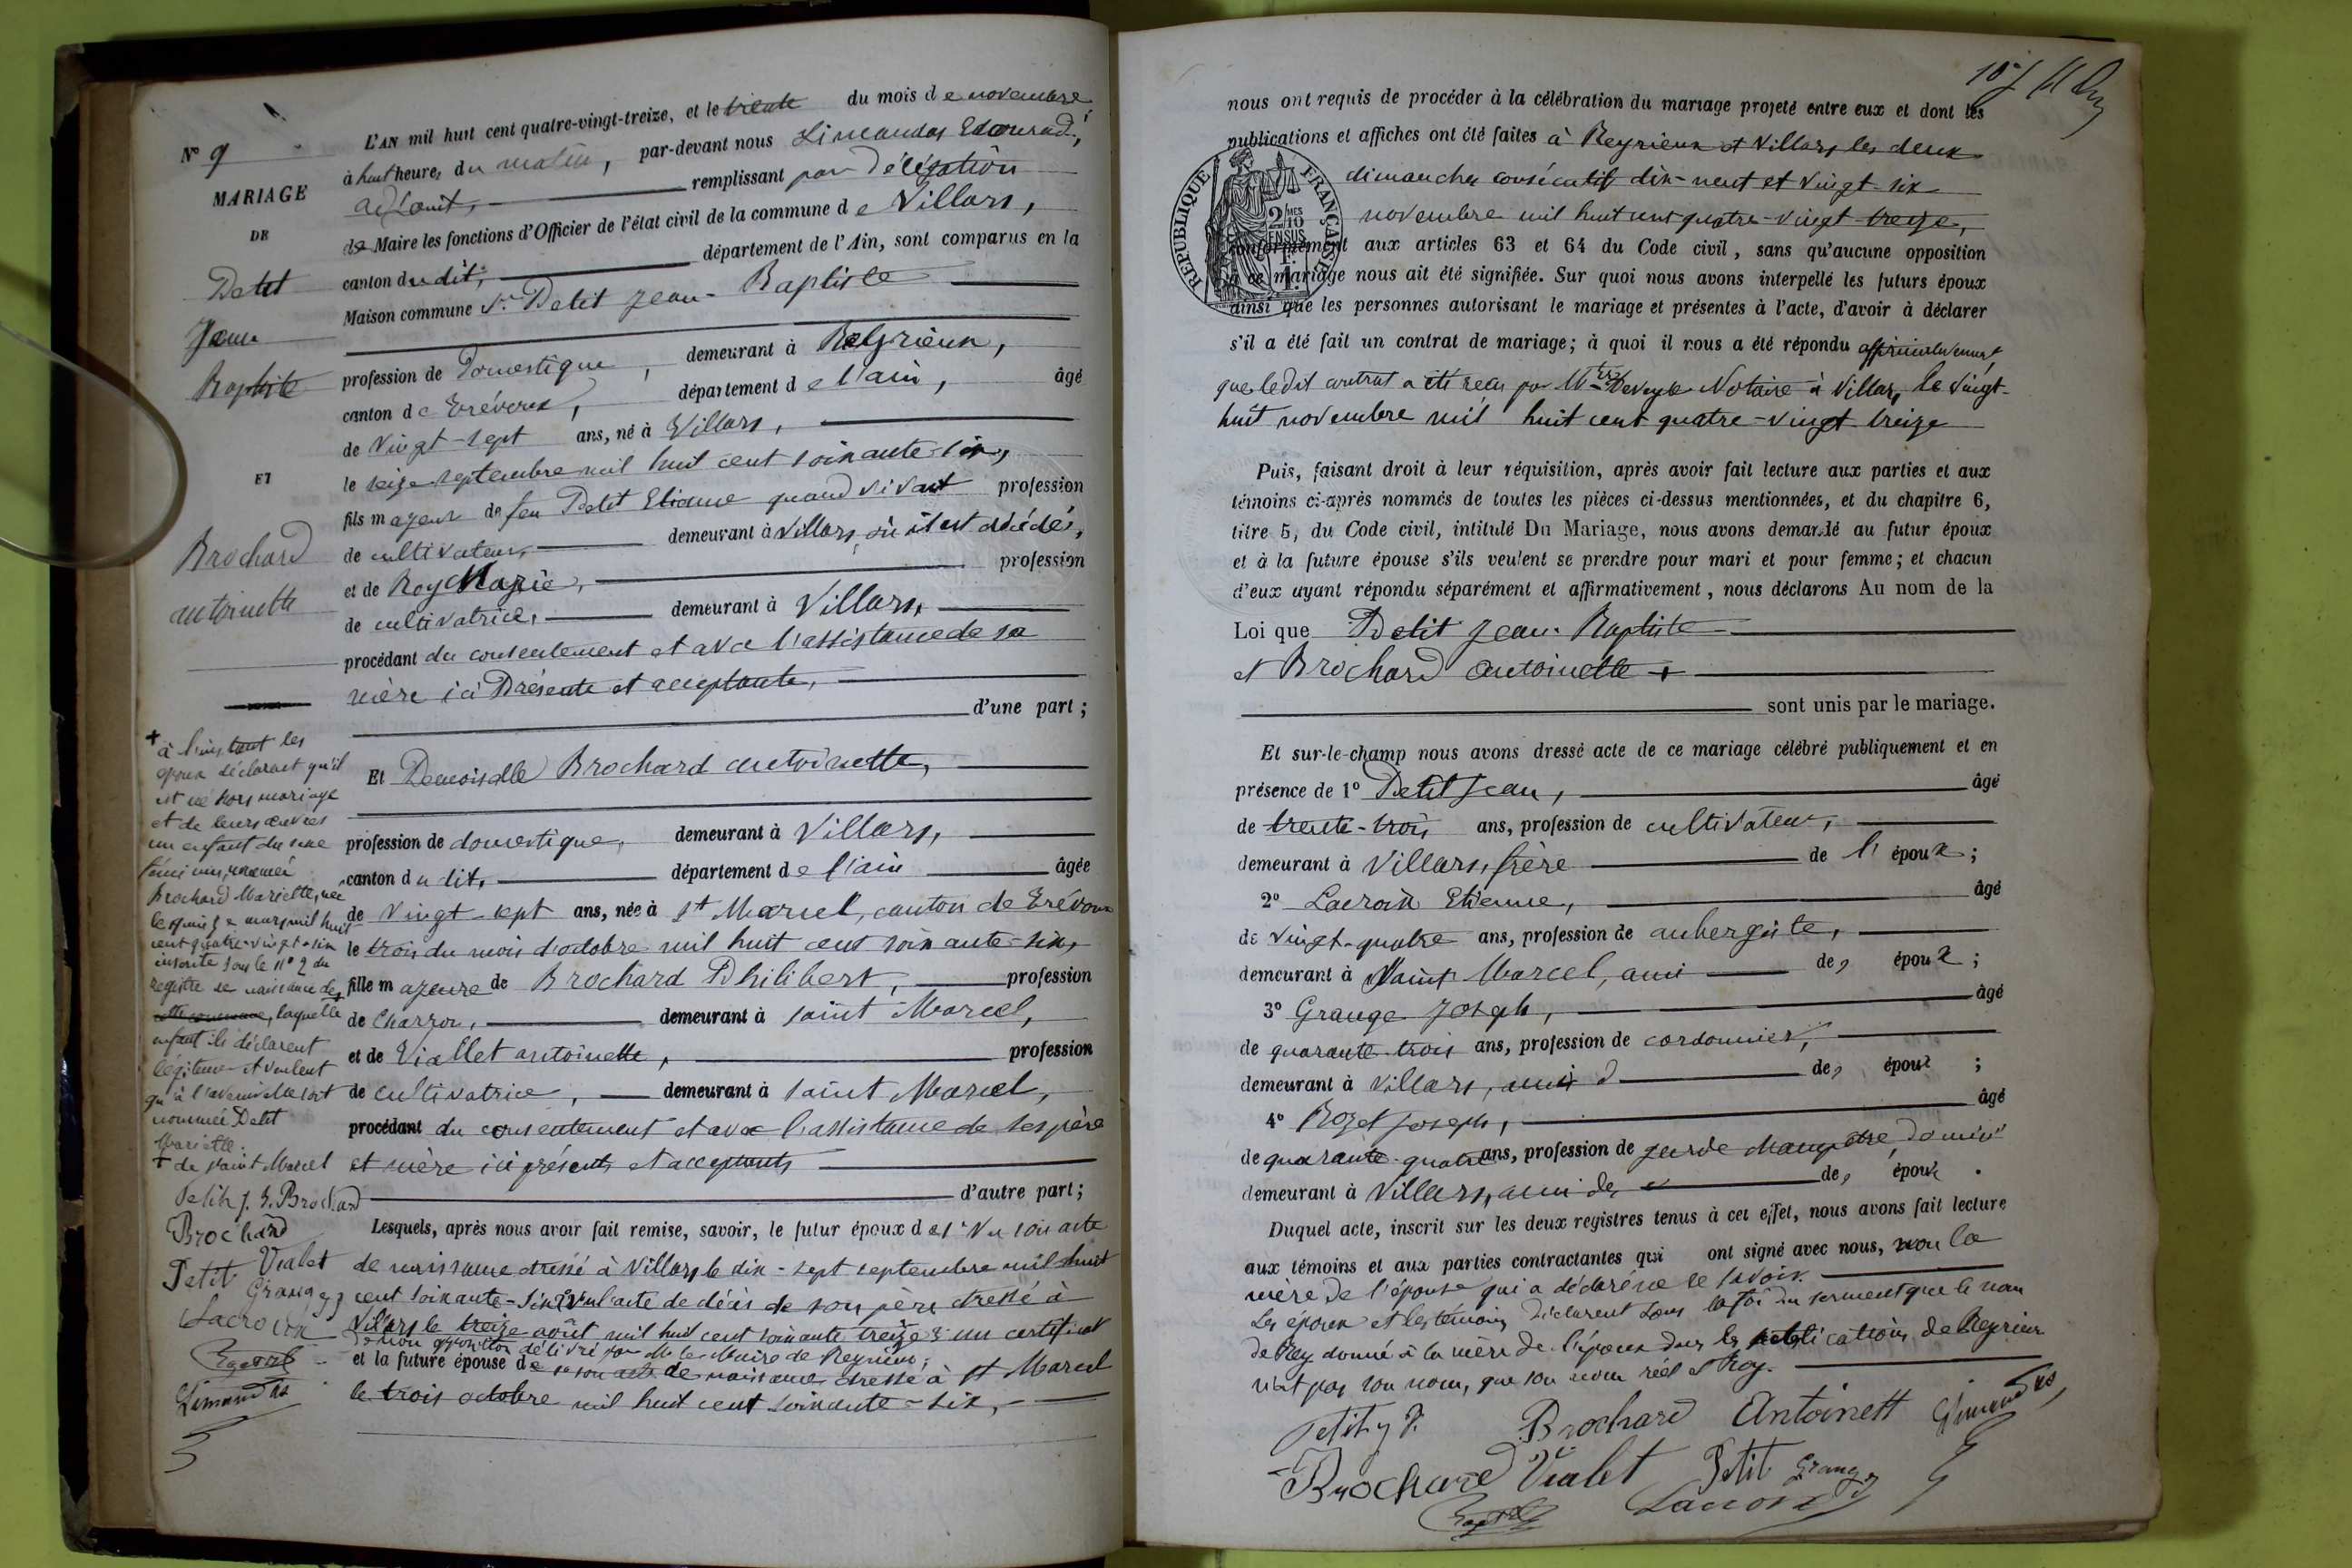 N° 9
MARIAGE
DE
Petit
Jean
Baptiste
ET
Brochard
antoinette
L'AN mil huit cent quatre-vingt-treize, et le trente du mois de novembre
à huit heures du matin, par-devant nous Limandas Edouard,
adjoint, remplissant par délégation
de Maire les fonctions d'Officier de l'état civil de la commune de Villars,
canton dudit, département de l'Ain, sont comparus en la
Maison commune Sr Petit Jean-Baptiste
profession de Domestique, demeurant à Reyrieux,
canton de Trévoux, département de l'ain, âgé
de vingt-sept ans, né à Villars,
le seize septembre mil huit cent soixante-six,
fils majeur de feu Petit Etienne quand vivant profession
de cultivateur, demeurant à Villars, où il est décédé,
et de Roy Marie, profession
de cultivatrice, demeurant à Villars,
procédant du consentement et avec l'assistance de sa
mère ici Présente et acceptante,
d'une part;
Et Demoiselle Brochard antoinette,
profession de domestique, demeurant à Villars,
canton dudit, département de l'ain âgée
de vingt-sept ans, née à St Marcel, canton de Trévoux
le trois du mois d'octobre mil huit cent soixante-six,
fille majeure de Brochard Philibert, profession
de Charron, demeurant à saint Marcel,
et de Viallet antoinette, profession
de cultivatrice, demeurant à saint Marcel,
procédant du consentement et avec l'assistance de ses père
et mère ici présents et acceptants
d'autre part;
Lesquels, après nous avoir fait remise, savoir, le futur époux de 1° Vu son acte
de naissance dressé à Villars le dix-sept septembre mil huit
cent soixante-six 2° Vu l'acte de décès de son père dressé à
Villars le treize août mil huit cent soixante treize 3° un certificat
de non opposition délivré par Mr le Maire de Reyrieux;
et la future épouse de son acte de naissance dressé à St Marcel
le trois octobre mil huit cent soixante-six,
+ à l'instant les
époux déclarent qu'il
est né hors mariage
et de leurs œuvres
un enfant du sexe
féminin, nommé
Brochard Mariette, née
le quinze mars mil huit
cent quatre-vingt-six
inscrite sous le N° 2 du
registre de naissance de
cette commune, laquelle
enfant ils déclarent
légitimer et veulent
qu'à l'avenir elle soit
nommée Petit
Mariette.
+ de saint Marcel
Petit J. B. Brochard
Brochard
Vialet
Petit
Grange J
Lacroix
Limandas
nous ont requis de procéder à la célébration du mariage projeté entre eux et dont les
publications et affiches ont été faites à Reyrieux et Villars les deux
dimanches consécutifs dix-neuf et vingt-six
novembre mil huit cent quatre-vingt-treize,
conformément aux articles 63 et 64 du Code civil, sans qu'aucune opposition
à ce mariage nous ait été signifiée. Sur quoi nous avons interpellé les futurs époux
ainsi que les personnes autorisant le mariage et présentes à l'acte, d'avoir à déclarer
s'il a été fait un contrat de mariage; à quoi il nous a été répondu affirmativement
que ledit contrat a été reçu par Mtre Deveyle Notaire à Villars, le vingt-
huit novembre mil huit cent quatre-vingt treize
RÉPUBLIQUE FRANÇAISE
2 MES
10 EN SUS
1 F
Puis, faisant droit à leur réquisition, après avoir fait lecture aux parties et aux
témoins ci-après nommés de toutes les pièces ci-dessus mentionnées, et du chapitre 6,
titre 5, du Code civil, intitulé Du Mariage, nous avons demandé au futur époux
et à la future épouse s'ils veulent se prendre pour mari et pour femme; et chacun
d'eux ayant répondu séparément et affirmativement, nous déclarons Au nom de la
Loi que Petit Jean-Baptiste
et Brochard antoinette +
sont unis par le mariage.
Et sur-le-champ nous avons dressé acte de ce mariage célébré publiquement et en
présence de 1° Petit Jean, âgé
de trente-trois ans, profession de cultivateur,
demeurant à Villars, frère de l'époux;
2° Lacroix Etienne, âgé
de vingt-quatre ans, profession de aubergiste,
demeurant à Saint Marcel, ami des époux;
3° Grange Joseph, âgé
de quarante trois ans, profession de cordonnier,
demeurant à Villars, ami des époux;
4° Rozet Joseph, âgé
de quarante-quatre ans, profession de garde champêtre, domicié
demeurant à Villars, ami des époux.
Duquel acte, inscrit sur les deux registres tenus à cet effet, nous avons fait lecture
aux témoins et aux parties contractantes qui ont signé avec nous, non la
mère de l'épouse qui a déclaré ne le savoir.
Les époux et les témoins déclarent sous la foi du serment que le nom
de Rey donné à la mère de l'époux dans les publications de Reyrieux
n'est pas son nom, que son nom réel est Roy.
Petit J B. Brochard Antoinett Limandas
Brochard Vialet Petit Grange J
Lacroix